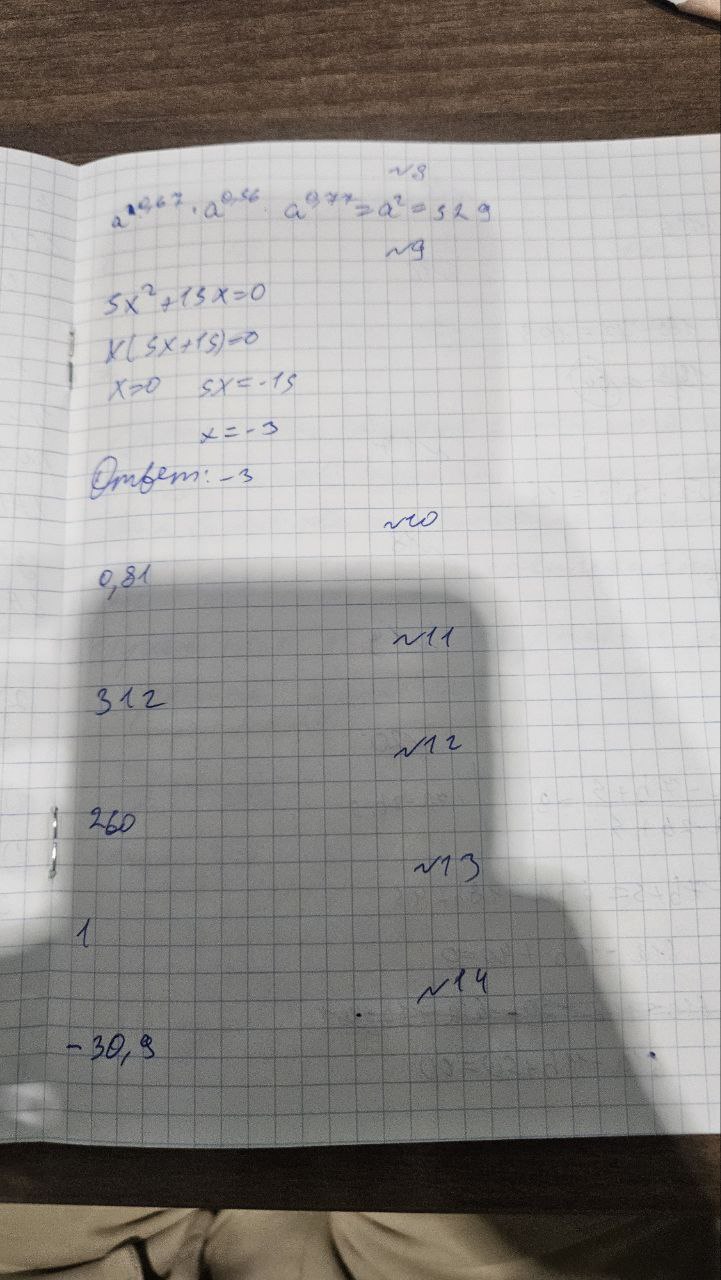 №8
a^0,67 · a^0,56 · a^0,77 = a² = 529
№9
5x² + 15x = 0
x(5x+15)=0
x=0 5x = -15
x = -3
Ответ: -3
№10
0,81
№11
312
№12
260
№13
1
№14
-30,9